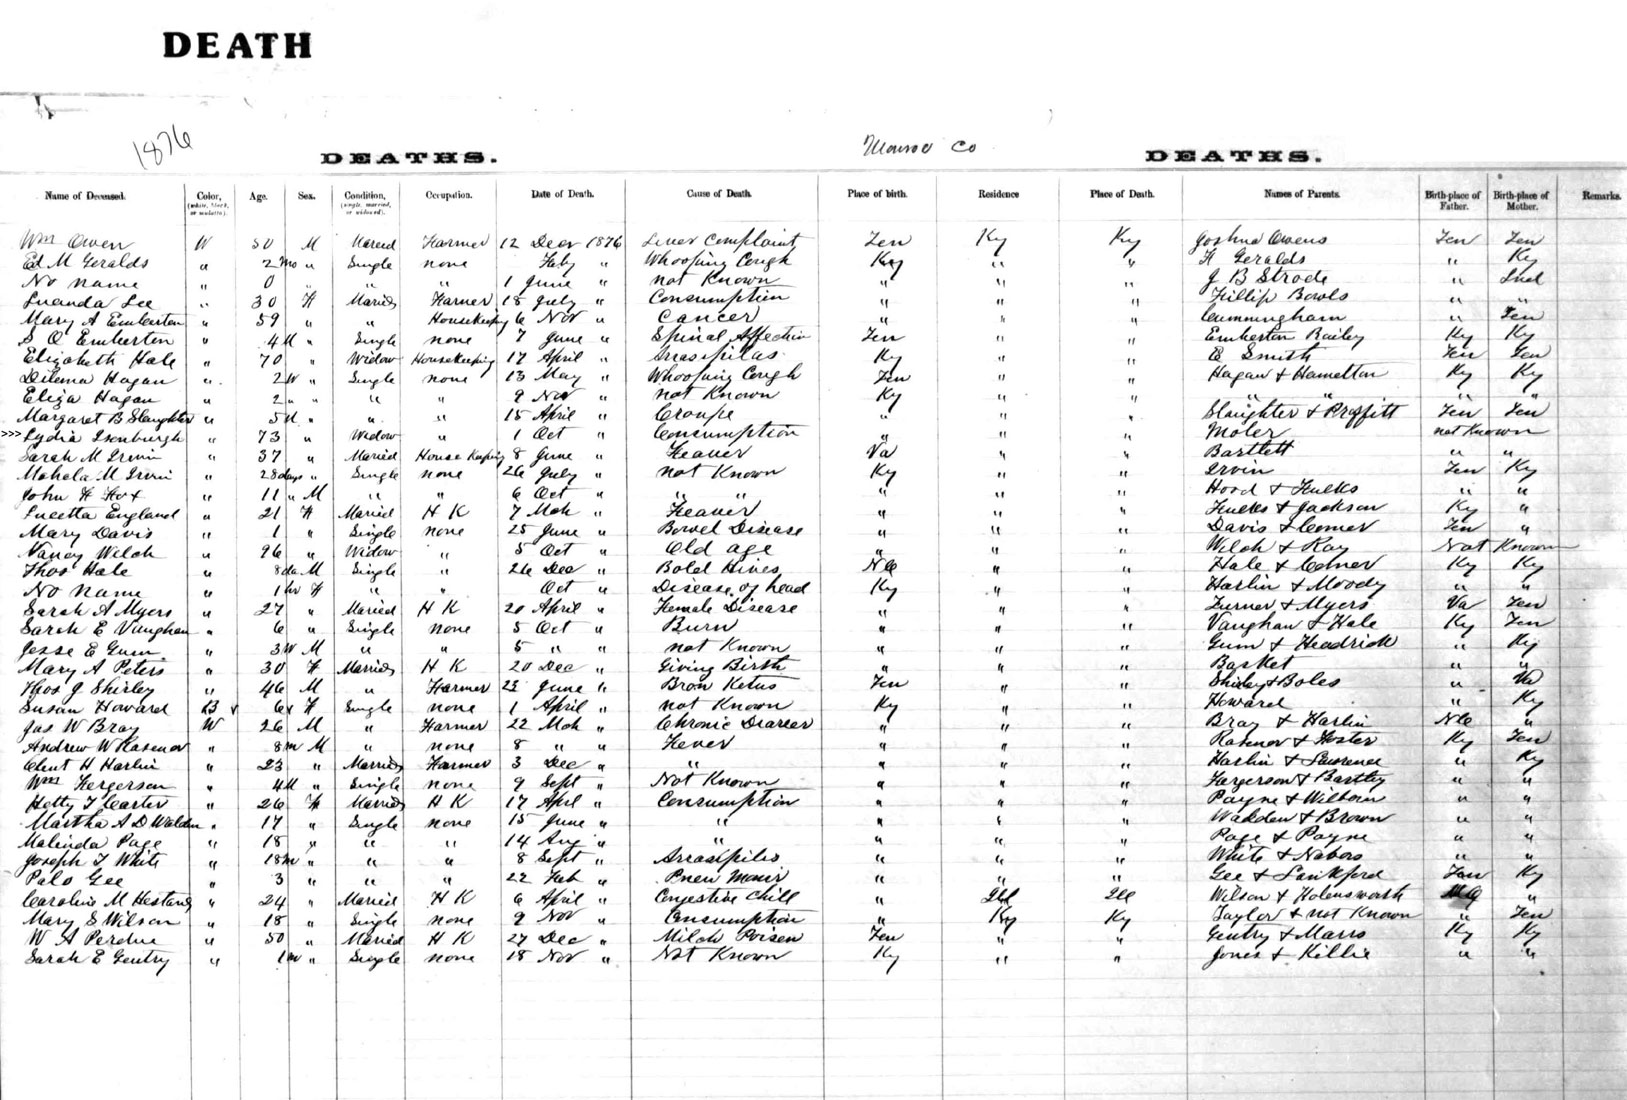 DEATH
1876
Monroe Co
DEATHS. DEATHS.
Name of Deceased. Color, (white, black, or mulatto). Age. Sex. Condition, (single, married, or widowed). Occupation. Date of Death. Cause of Death. Place of birth. Residence Place of Death. Names of Parents. Birth-place of Father. Birth-place of Mother. Remarks.
Wm Owen W 50 M Maried Farmer 12 Decr 1876 Liver Complaint Ten Ky Ky Joshua Owens Ten Ten
Ed M Geralds " 2 mo " Single none Feby " Whooping Cough Ky " " H Geralds " Ky
No name " 0 " " " 1 June " not Known " " " J B Strode " Ind
Luanda Lee " 30 F Maried Farmer 18 July " Consumption " " " Fillip Bowls " "
Mary A Emberton " 59 " " Housekeeping 6 Nov " Cancer " " " Cunningham " Ten
S O Emberton " 4 M " Single none 7 June " Spinal Affection Ten " " Emberton Bailey Ky Ky
Elizabeth Hale " 70 " Widow Housekeeping 12 April " Arrasipilas Ky " " E Smith Ten Ten
Dilema Hagan " 2 W " Single none 13 May " Whooping Cough Ten " " Hagan & Hamelton Ky Ky
Eliza Hagan " 2 " " " " 9 Nov " not Known Ky " " " " " "
Margaret B Slaughter " 5 M " " " 15 April " Croupe " " " Slaughter & Proffitt Ten Ten
>>> Lydia Isenburgh " 73 " Widow " 1 Oct " Consumption " " " Moler not Known
Sarah M Irvin " 37 " Maried House Keeping 8 June " Feaver Va " " Bartlett " "
Mahala M Irvin " 28 days " Single none 26 July " not Known Ky " " Irvin Ten Ky
John H Fox " 11 " M " " 6 Oct " " " " " " Hood & Fulks " "
Lucetta England " 21 F Maried H K 7 Mch " Feaver " " " Fulks & Jackson Ky "
Mary Davis " 1 " Single none 25 June " Bowel Disease " " " Davis & Comer Ten "
Nancy Welch " 96 " Widow " 5 Oct " Old age " " " Welch & Ray Not Known
Thos Hale " 8 da M Single " 26 Dec " Bold Hives NC " " Hale & Comer Ky Ky
No name " 1 hr F " " Oct " Disease of head Ky " " Harlin & Moody " "
Sarah A Myers " 27 " Maried H K 20 April " Female Disease " " " Turner & Myers Va Ten
Sarah E Vaughan " 6 " Single none 5 Oct " Burn " " " Vaughan & Hale Ky Ten
Jesse E Gum " 3 W M " " 5 " " not Known " " " Gum & Headrick " Ky
Mary A Peters " 30 F Maried H K 20 Dec " Giving Birth " " " Basket " "
Thos J Shirley " 46 M " Farmer 23 June " Bron Ketus Ten " " Shirley & Boles " Va
Susan Howard B 6 F Single none 1 April " not Known Ky " " Howard " Ky
Jas W Bray W 26 M " Farmer 22 Mch " Chronic Diareer " " " Bray & Harlin NC "
Andrew W " 8 m M " none 8 " " Fever " " " & Foster Ky Ten
Clint H Harlin " 23 " Maried Farmer 3 Dec " " " " " Harlin & Lawrence " Ky
Wm Fergerson " 4 M " Single none 9 Sept " Not Known " " " Fargerson & Bartley " "
Hetty T Carter " 26 F Maried H K 17 Aprl " Consumption " " " Payne & Wilborn " "
Martha A D Walden " 17 " Single none 15 June " " " " " Walden & Brown " "
Malinda Page " 18 " " " 14 Aug " " " " " Page & Payne " "
Joseph T White " 18 m " " " 8 Sept " Arrasipiles " " " White & Nabors " "
Palo Gee " 3 " " " 22 Feb " Pneu " " " Gee & Lankford Ten Ky
Caroline M Hestand " 24 " Maried H K 6 April " Congestive Chill " Ill Ill Wilson & Holensworth "
Mary S Wilson " 18 " Single none 9 Nov " Consumption " Ky Ky Taylor & not Known " Ten
W A Perdue " 50 " Maried H K 27 Dec " Milch Poisen Ten " " Gentry & Marrs Ky Ky
Sarah E Gentry " 1 m " Single none 18 Nov " Not Known Ky " " Jones & Killie " "